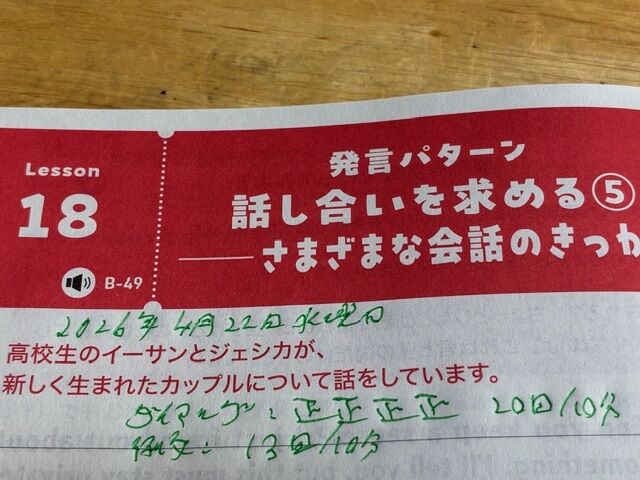 Lesson
18
B-49
発言パターン
話し合いを求める⑤
さまざまな会話のきっか
2026年4月22日水曜日
高校生のイーサンとジェシカが、
新しく生まれたカップルについて話をしています。
正正正正 20回/10分
13回/10分